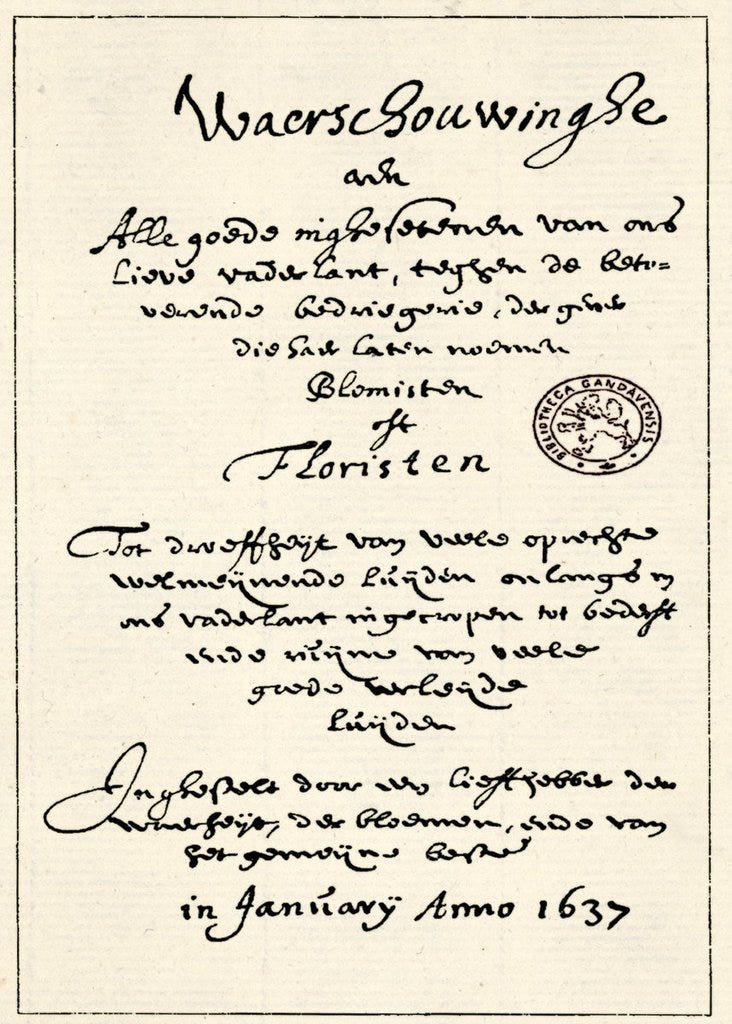 Waerschouwinghe
aen
Alle goede inghesetenen van ons
Lieve vaderlant, teghen de beto=
verende bedriegerie, der gener
die haer laten noemen
Blomisten
oft
Floristen
BIBLIOTHECA GANDAVENSIS
Tot droeffheijt van veele oprechte
welmeijnende luijden onlangs in
ons vaderlant ingecropen tot bederft
ende ruijne van veele
goede verleijde
luijden
Inghestelt door een liefhebber der
waerheijt, der bloemen, ende van
het gemeijne beste
in Januarij Anno 1637